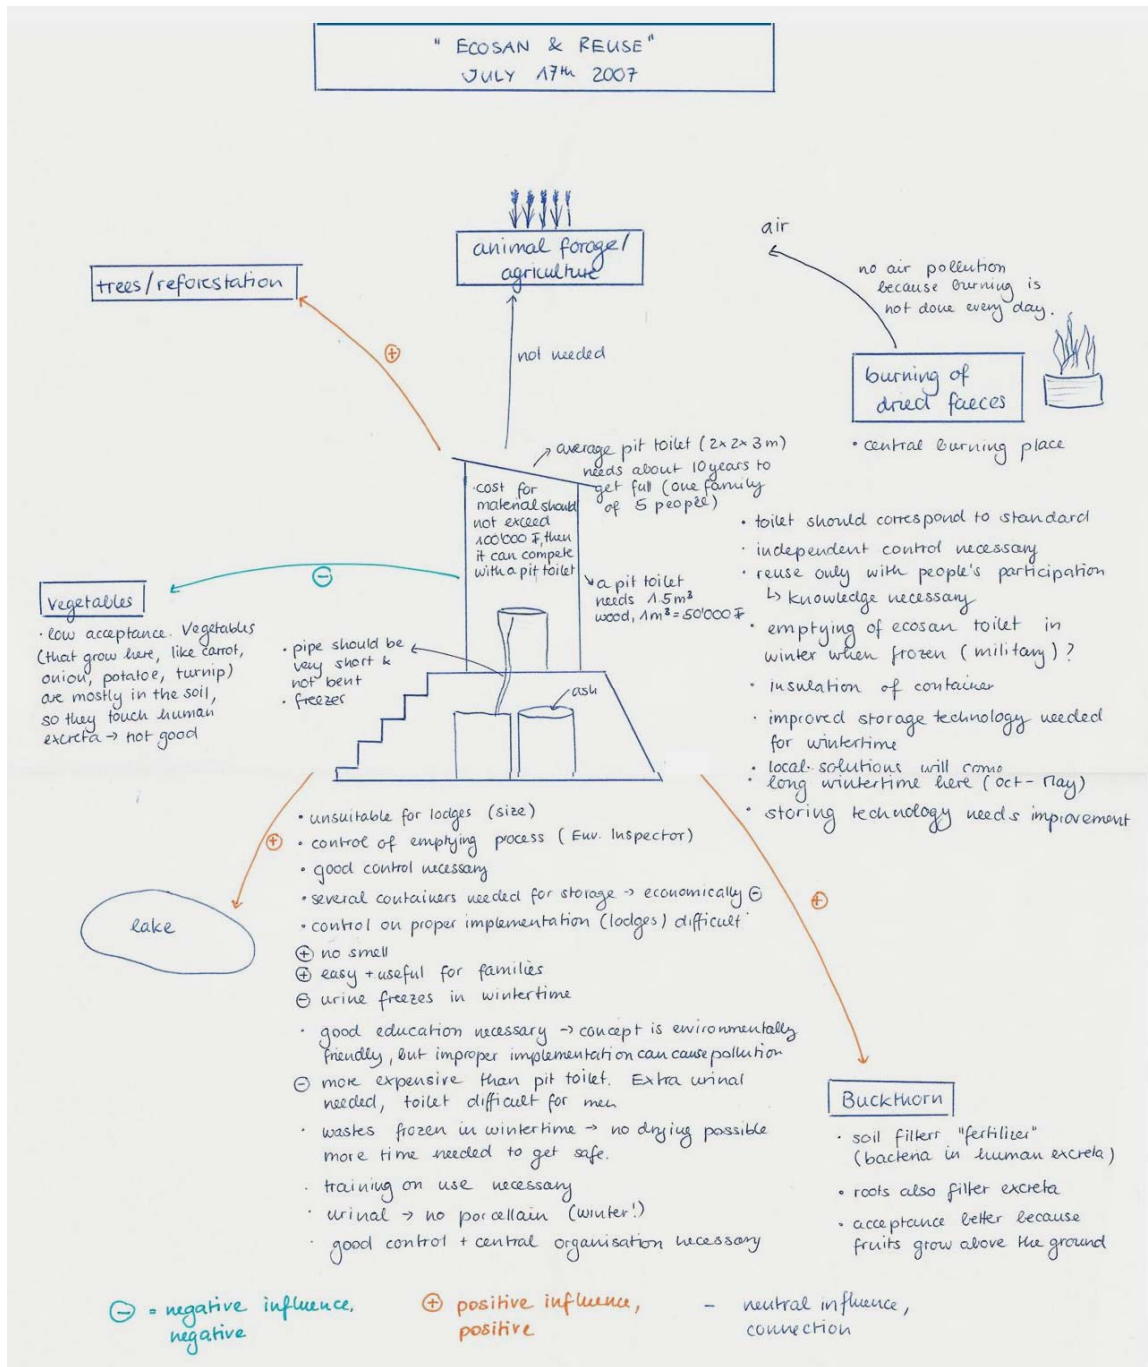 " ECOSAN & REUSE"
JULY 17th 2007
air
animal forage/
agriculture
trees/reforestation
no air pollution
because burning is
not done every day.
⊕
not needed
burning of
dried faeces
• central burning place
average pit toilet (2x2x3m)
needs about 10 years to
get full (one family
of 5 people)
• cost for
material should
not exceed
100'000 ₮, then
it can compete
with a pit toilet
a pit toilet
needs 1.5m³
wood, 1m³ = 50'000 ₮
⊖
Vegetables
• low acceptance. Vegetables
(that grow here, like carrot,
onion, potatoe, turnip)
are mostly in the soil,
so they touch human
excreta → not good
• pipe should be
very short &
not bent
• freezer
ash
• toilet should correspond to standard
• independent control necessary
• reuse only with people's participation
↳ knowledge necessary
• emptying of ecosan toilet in
winter when frozen (military) ?
• insulation of container
• improved storage technology needed
for wintertime
• local solutions will come
• long wintertime here (oct - May)
• storing technology needs improvement
⊕
lake
• unsuitable for lodges (size)
• control of emptying process (Env. Inspector)
• good control necessary
• several containers needed for storage → economically ⊖
• control on proper implementation (lodges) difficult
⊕ no smell
⊕ easy + useful for families
⊖ urine freezes in wintertime
• good education necessary → concept is environmentally
friendly, but improper implementation can cause pollution
⊖ more expensive than pit toilet. Extra urinal
needed, toilet difficult for men
• wastes frozen in wintertime → no drying possible
more time needed to get safe.
• training on use necessary
• urinal → no porcellain (winter!)
• good control + central organisation necessary
⊕
Buckthorn
• soil filters "fertilizer"
(bacteria in human excreta)
• roots also filter excreta
• acceptance better because
fruits grow above the ground
⊖ = negative influence,
negative
⊕ positive influence,
positive
– neutral influence,
connection